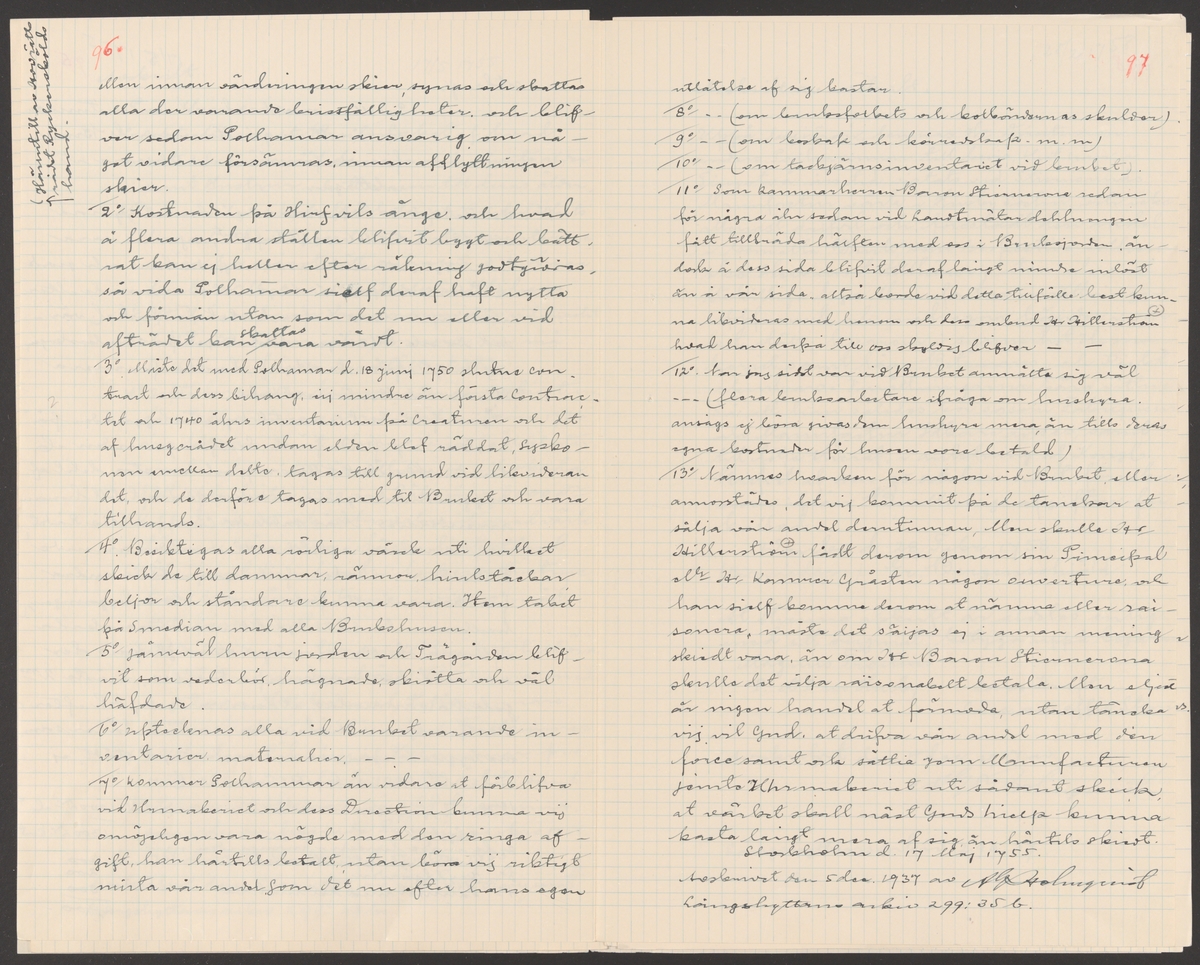 96.
(Härintill av Hovrätt
rådet Lyckenskölds
hand.
Men innan värdningen skier, synas och skattas
alla der varande bristfälligheter, och blif-
ver sedan Polhamar ansvarig om nå-
got vidare försämras, innan afflyttningen
skier.
2° Kostnaden på Hirfvils änge, och hvad
å flera andra ställen blifvit bygt och bätt-
rat kan ej heller efter räkning godtgiöras,
så vida Polham̄ar sielf deraf haft nytta
och förmån utan som det nu eller vid
afträdet kan skattas vara värdt.
3° Måste det med Polhamar d. 18 junij 1750 slutne con-
tract och dess bihang, eij mindre än första Contrac-
tet och 1740 åhrs inventarium på Creaturen och det
af husgerådet undan elden blef räddat, Sysko-
nen emellan delte, tagas till grund vid likvideran
det, och de derföre tagas med til Bruket och vara
tilhands.
4° Besiktigas alla rörliga värck uti hvilket
skick de till dammar, rännor, hiulstäckar,
beljor och ståndare kunna vara. Item taket
på Smedian med alla Brukshusen.
5° Jämväl huru jorden och Trägården blif-
vit som vederbör, hägnade, skiötta och väl
häfdade.
6° Upteckenas alla vid Bruket varande in-
ventarier materialier, - - -
7° Kommer Polhammar än vidare at förblifva
vid Urmakeriet och dess Direction kunna vij
omöjeligen vara nögde med den ringa af-
gift, han härtills betalt, utan böra vij riktigt
nuita vår andel som det nu efter hans egen
97
utlåtelse af sig kastar.
8° - - (om bruksfolkets och kolböndernas skulder).
9° - - (om boskap och körredskap. m. m)
10° - - (om tackjärnsinventariet vid bruket).
11° Som Kammarherren Baron Stiernerona redan
för några åhr sedan vid Landtmätar dehlningen
fått tillträda hälften med oss i Bruksjorden, än-
dock å dess sida blifvit deraf långt mindre inlöst
än å vår sida, altså borde vid detta tilfälle best kun-
na likvideras med honom och dess ombud Hr Hillerström
hvad han derpå till oss skyldig blifver — —
12° När jag sidst var vid Bruket anmälte sig väl
--- (flera bruksarbetare ifråga om hushyra.
ansågs ej böra givas dem hushyra mera, än tills deras
egna kostnader för husen vore betald)
13° Nämnes hvarken för någon vid Bruket eller
annorstädes, det vij kommit på de tanckar at
sälja vår andel deruti̅nnan, Men skulle Hr
Hillerström fådt derom genom sin Principal
elr Hr Kamrer Gråsten någon ouverture, och
han sielf komme derom at nämna eller rai-
sonera, måste det säijas ej i annan mening
skiedt vara, än om Hr Baron Stiernerona
skulle det vilja raisonabelt betala. Men eljest
är ingen handel at förmoda, utan täncka
vij, vil Gud, at drifva vår andel med den
force samt och sättie som Manufacturen
jemte Uhrmakeriet uti sådant skick,
at värket skall näst Guds hielp kunna
kasta långt mera af sig, än härtils skiedt.
Stockholm d. 17 Maj 1755.
Avskrivet den 5 dec. 1937 av Holmquist
Långshyttans arkiv 299: 35 b.